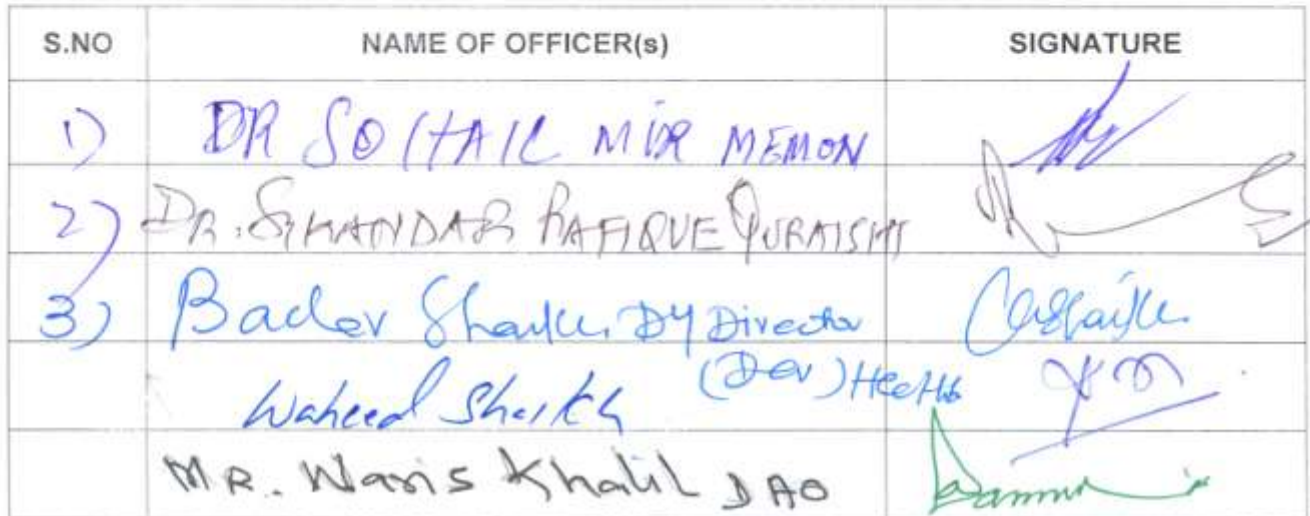 S.NO NAME OF OFFICER(s) SIGNATURE
1) DR SOHAIL MIR MEMON
2) DR. SIKANDAR RAFIQUE QURAISHI
3) Bader Shaikh Dy Director
(Dev) Health
Waheed Sheikh
MR. Waris Khalil DAO